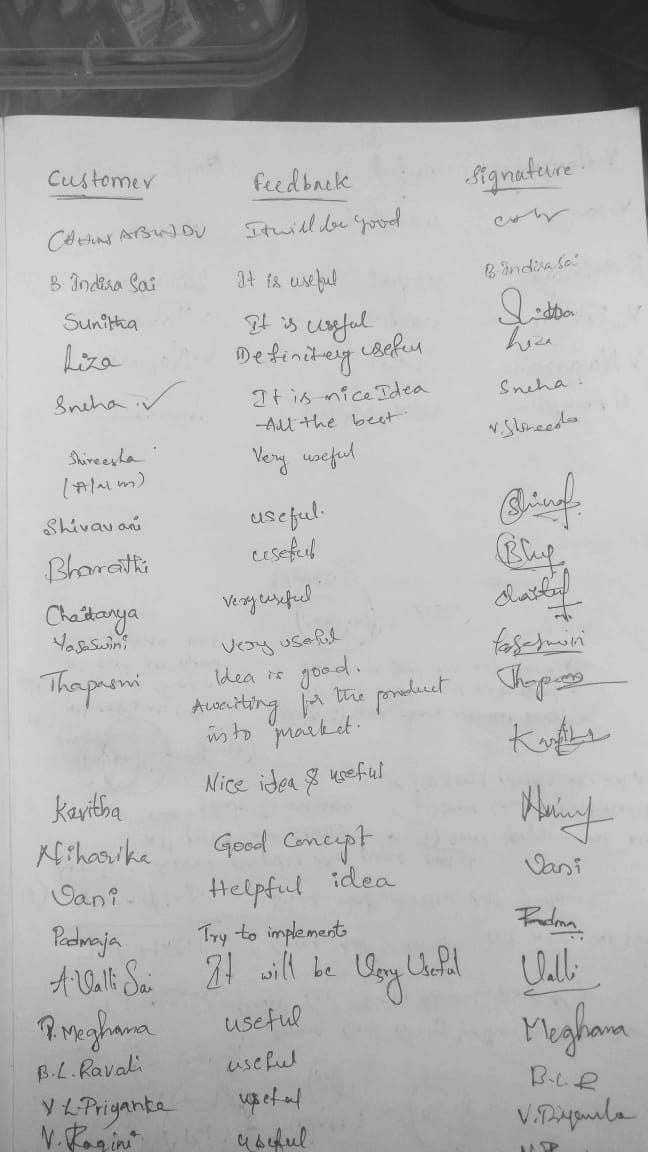 Customer Feedback Signature
It will be good
B. Indira Sai It is useful B. Indira Sai
Sunitha It is useful
Liza Definitely useful Liza
Sneha It is nice Idea Sneha
All the best
Shireesha Very useful
Shivavani useful.
Bharathi useful
Chaitanya very useful
Yasaswini Very useful Yasaswini
Thapasmi Idea is good.
Awaiting for the product
into market.
Nice idea & useful
Kavitha
Niharika Good Concept
Vani. Helpful idea Vani
Padmaja Try to implement Padma
A. Valli Sai It will be Very Useful Valli
P. Meghana useful Meghana
B.L. Ravali useful B.L.R
V L. Priyanka useful V. Priyanka
V. Ragini useful